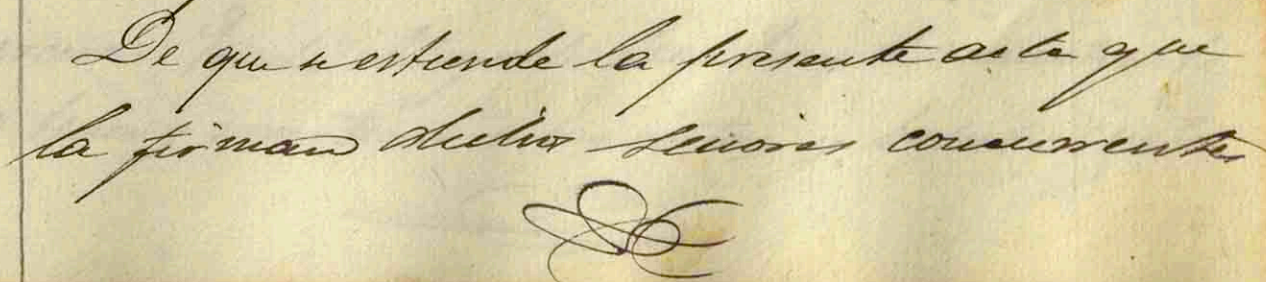 De que se estiende la presente acta que
la firman dichos señores concurrentes